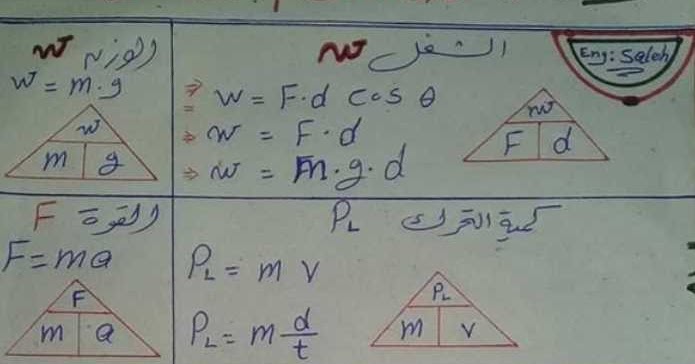 الوزن w
w = m.g
w
m g
الشغل w
Eng: Saleh
⇒ w = F.d cos θ
⇒ w = F.d
⇒ w = m.g.d
w
F d
القوة F
F = ma
F
m a
كمية التحرك PL
PL = m v
PL = m d/t
PL
m v